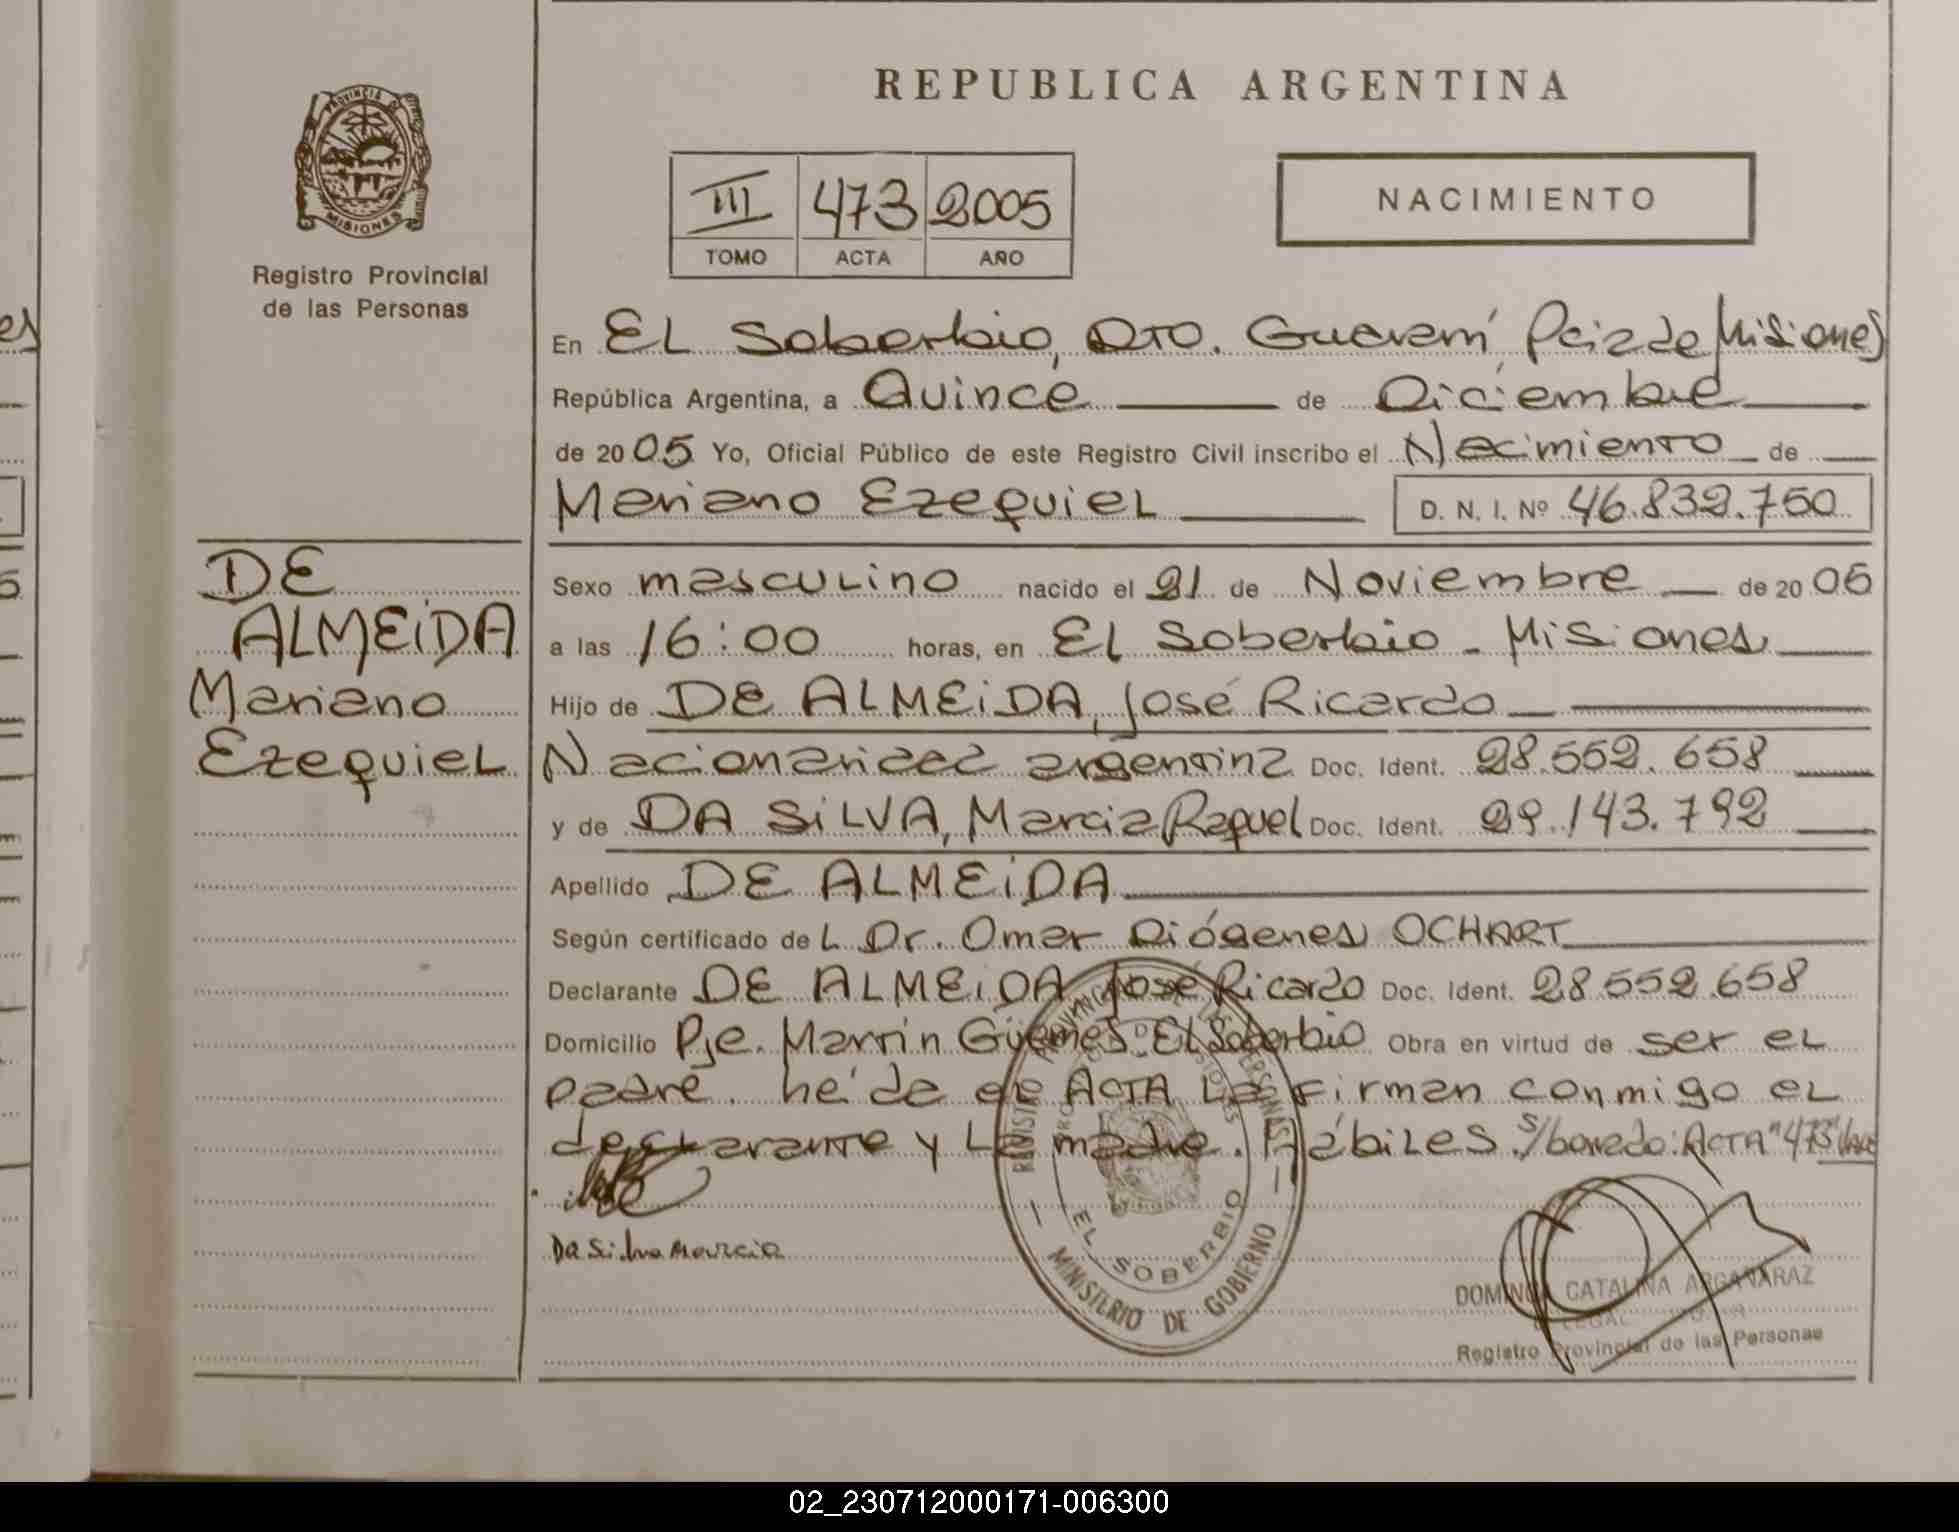 REPUBLICA ARGENTINA
PROVINCIA DE
MISIONES
Registro Provincial
de las Personas
III 473 2005
TOMO ACTA AÑO
NACIMIENTO
En EL Soberbio, DTO. Guaraní Pcia de Misiones
República Argentina, a Quince de Diciembre
de 2005 Yo, Oficial Público de este Registro Civil inscribo el Nacimiento de
Mariano EzequieL D. N. I. Nº 46.832.750
DE
ALMEiDA
Mariano
EzequieL
Sexo mascuLino nacido el 21 de Noviembre de 2005
a las 16:00 horas, en EL Soberbio - Misiones
Hijo de DE ALMEiDA, José Ricardo
Nacionalidad argentina Doc. Ident. 28.552.658
y de DA SiLVA, Marcia Raquel Doc. Ident. 29.143.792
Apellido DE ALMEiDA
Según certificado deL Dr. Omar Diógenes OCHART
Declarante DE ALMEiDA José Ricardo Doc. Ident. 28.552.658
Domicilio Pje. Martín Güemes. El Soberbio Obra en virtud de ser eL
padre. Leída eL ACTA La firman conmigo eL
decLarante y La madre. HábiLes. s/borrado: ACTA "473" Vale
Da Silva Marcia
EL SOBERBIO
MINISTERIO DE GOBIERNO
DOMINGA CATALINA ARGAÑARAZ
Registro Provincial de las Personas
02_230712000171-006300